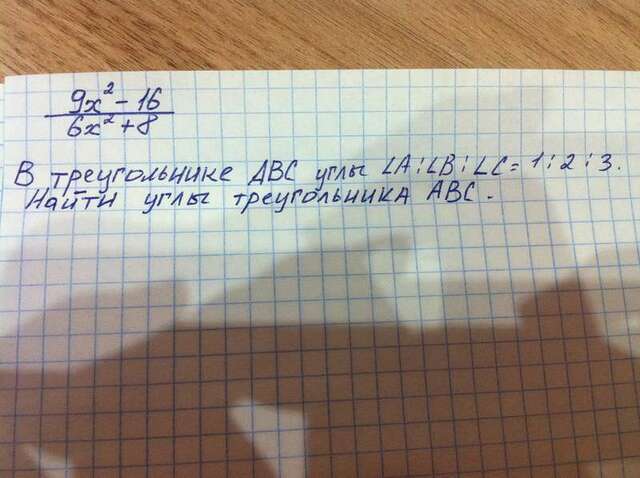 9x² - 16
6x² + 8
В треугольнике ABC углы ∠A : ∠B : ∠C = 1 : 2 : 3.
Найти углы треугольника ABC.